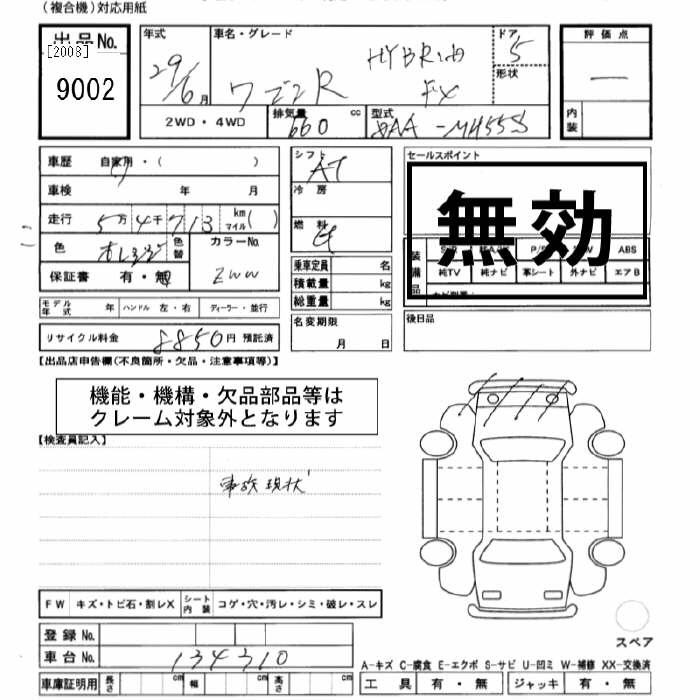 (複合機)対応用紙
出品No.
[2003]
9002
年式
29/6月
車名・グレード
HYBRID
ワゴンR
FX
ドア
5
形状
評価点
—
内装
2WD・4WD
排気量
660
cc
型式
DAA-MH55S
車歴
自家用・( )
車検
年 月
走行
5万4千713
km
マイル
( )
色
オレンジ
色替
カラーNo.
ZWW
保証書
有・無
モデル年式
年
ハンドル 左・右
ディーラー・並行
リサイクル料金
8850円 預託済
シフト
AT
冷房
燃料
乗車定員
名
積載量
kg
総重量
kg
名変期限
月 日
セールスポイント
無効
装備品
ABS
純TV
純ナビ
革シート
外ナビ
エアB
後日品
【出品店申告欄(不良箇所・欠品・注意事項等)】
機能・機構・欠品部品等は
クレーム対象外となります
【検査員記入】
事故現状
FW
キズ・トビ石・割レX
シート内装
コゲ・穴・汚レ・シミ・破レ・スレ
登録No.
車台No.
134310
車庫証明用
長さ
cm
幅
cm
高さ
cm
スペア
A-キズ C-腐食 E-エクボ S-サビ U-凹ミ W-補修 XX-交換済
工具
有・無
ジャッキ
有・無